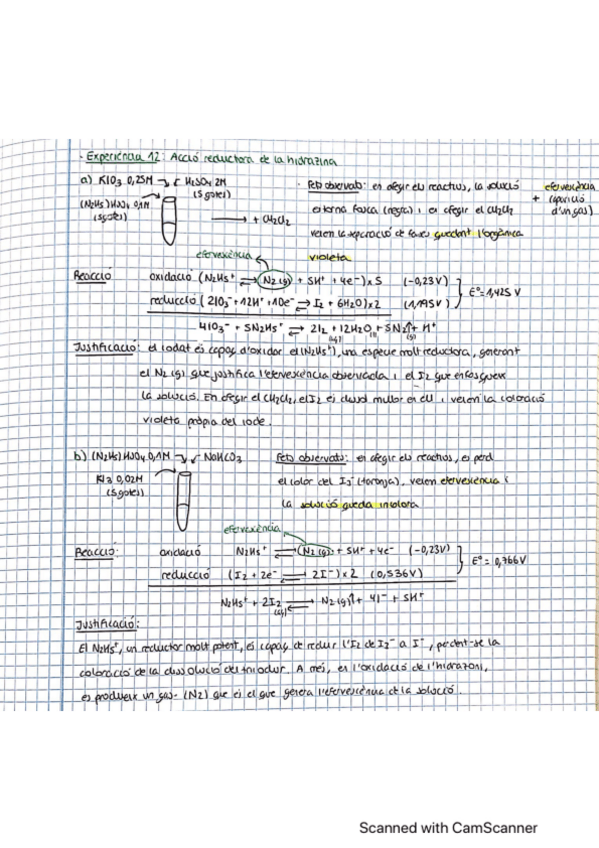 · Experiència 12: Acció reductora de la hidrazina
a) KIO3 0,25M H2SO4 2M
(5 gotes)
(N2H5)HSO4 0,1M
(5 gotes)
+ CH2Cl2
· Fets observats: en afegir els reactius, la solució
es torna fosca (negra) i en afegir el CH2Cl2
veiem la separació de fases quedant l'orgànica
violeta
efervescència
+ (aparició
d'un gas)
efervescència
Reacció oxidació (N2H5+ ⇌ N2(g) + 5H+ + 4e-) x5 (-0,23V)
reducció (2IO3- + 12H+ + 10e- ⇌ I2 + 6H2O) x2 (1,195V)
E°= 1,425 V
4IO3- + 5N2H5+ ⇌ 2I2 + 12H2O + 5N2↑ + H+
(aq) (l) (g)
Justificació: el iodat és capaç d'oxidar el (N2H5+), una espècie molt reductora, generant
el N2(g) que justifica l'efervescència observada i el I2 que enfosqueix
la solució. En afegir el CH2Cl2, el I2 es dissol millor en ell i veiem la coloració
violeta pròpia del iode.
b) (N2H5)HSO4 0,1M NaHCO3
KI3 0,02M
(5 gotes)
Fets observats: en afegir els reactius, es perd
el color del I3- (taronja), veiem efervescència i
la solució queda incolora
efervescència
Reacció: oxidació N2H5+ ⇌ N2(g) + 5H+ + 4e- (-0,23V)
reducció (I2 + 2e- ⇌ 2I-) x2 (0,536V)
E°= 0,766V
N2H5+ + 2I2 ⇌ N2(g)↑ + 4I- + 5H+
(aq)
Justificació:
El N2H5+, un reductor molt potent, és capaç de reduir l'I2 de I3- a I-, perdent-se la
coloració de la dissolució del triiodur. A més, en l'oxidació de l'hidrazoni,
es produeix un gas- (N2) que és el que genera l'efervescència de la solució.
Scanned with CamScanner